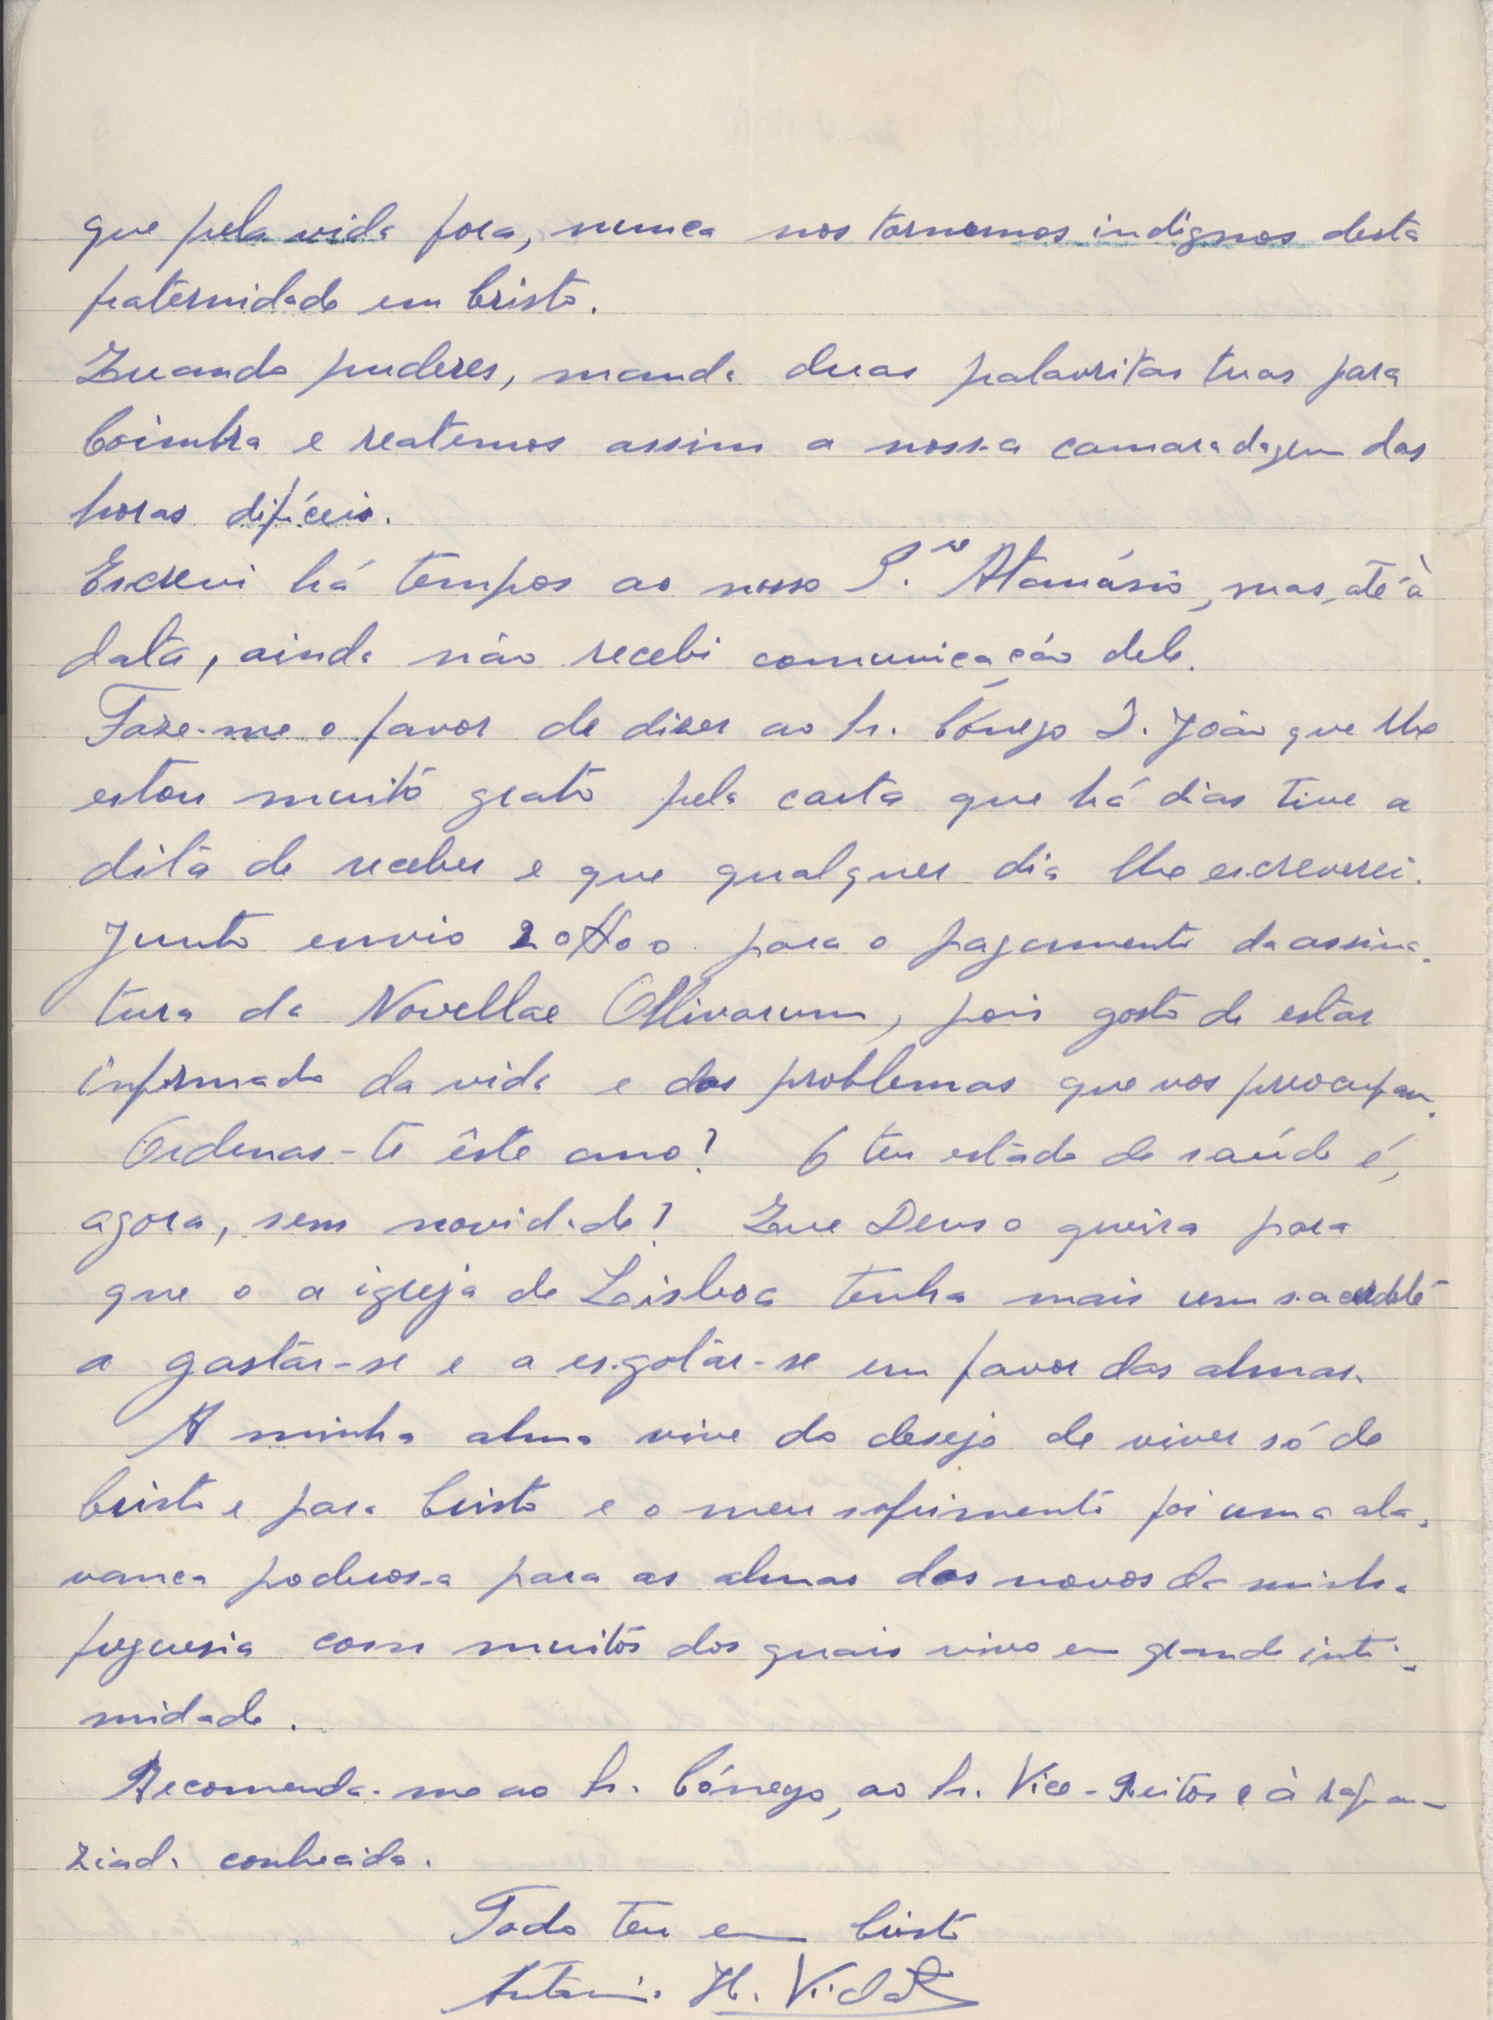 que pela vida fora, nunca nos tornemos indignos desta
fraternidade em Cristo.
Quando puderes, manda duas palavritas tuas para
Coimbra e reatemos assim a nossa camaradagem das
horas difíceis.
Escrevi há tempos ao nosso P.e Atanásio, mas, até à
data, ainda não recebi comunicação dele.
Faze-me o favor de dizer ao Sr. Cónego D. João que lhe
estou muito grato pela carta que há dias tive a
dita de receber e que qualquer dia lhe escreverei.
Junto envio 20$00 para o pagamento da assina-
tura da Novellae Ollivarum, pois gosto de estar
informado da vida e dos problemas que vos preocupam.
Ordenas-te êste ano? O teu estado de saúde é,
agora, sem novidade? Que Deus o queira para
que o a igreja de Lisboa tenha mais um sacerdote
a gastar-se e a esgotar-se em favor das almas.
A minha alma vive do desejo de viver só de
Cristo e para Cristo e o meu sofrimento foi uma ala-
vanca poderosa para as almas dos novos da minha
freguesia com muitos dos quais vivo em grande inti-
midade.
Recomenda-me ao Sr. Cónego, ao Sr. Vice-Reitor e à rapa-
ziada conhecida.
Todo teu em Cristo
António H. Vidal